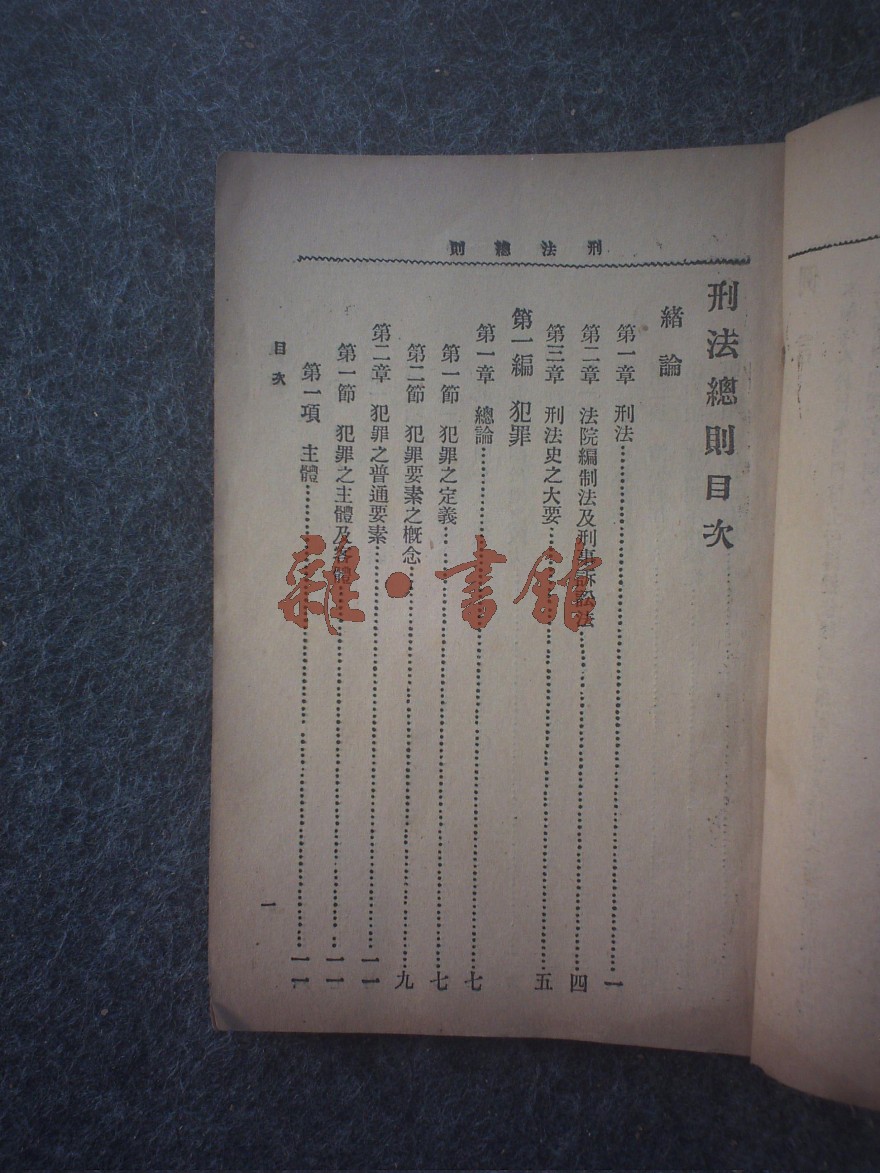 刑法總則
刑法總則目次
緒論
第一章 刑法……一
第二章 法院編制法及刑事訴訟法……四
第三章 刑法史之大要……五
第一編 犯罪
第一章 總論……七
第一節 犯罪之定義……七
第二節 犯罪要素之概念……九
第二章 犯罪之普通要素……一一
第一節 犯罪之主體及客體……一一
第一項 主體……一一
目次
一
雜·書館